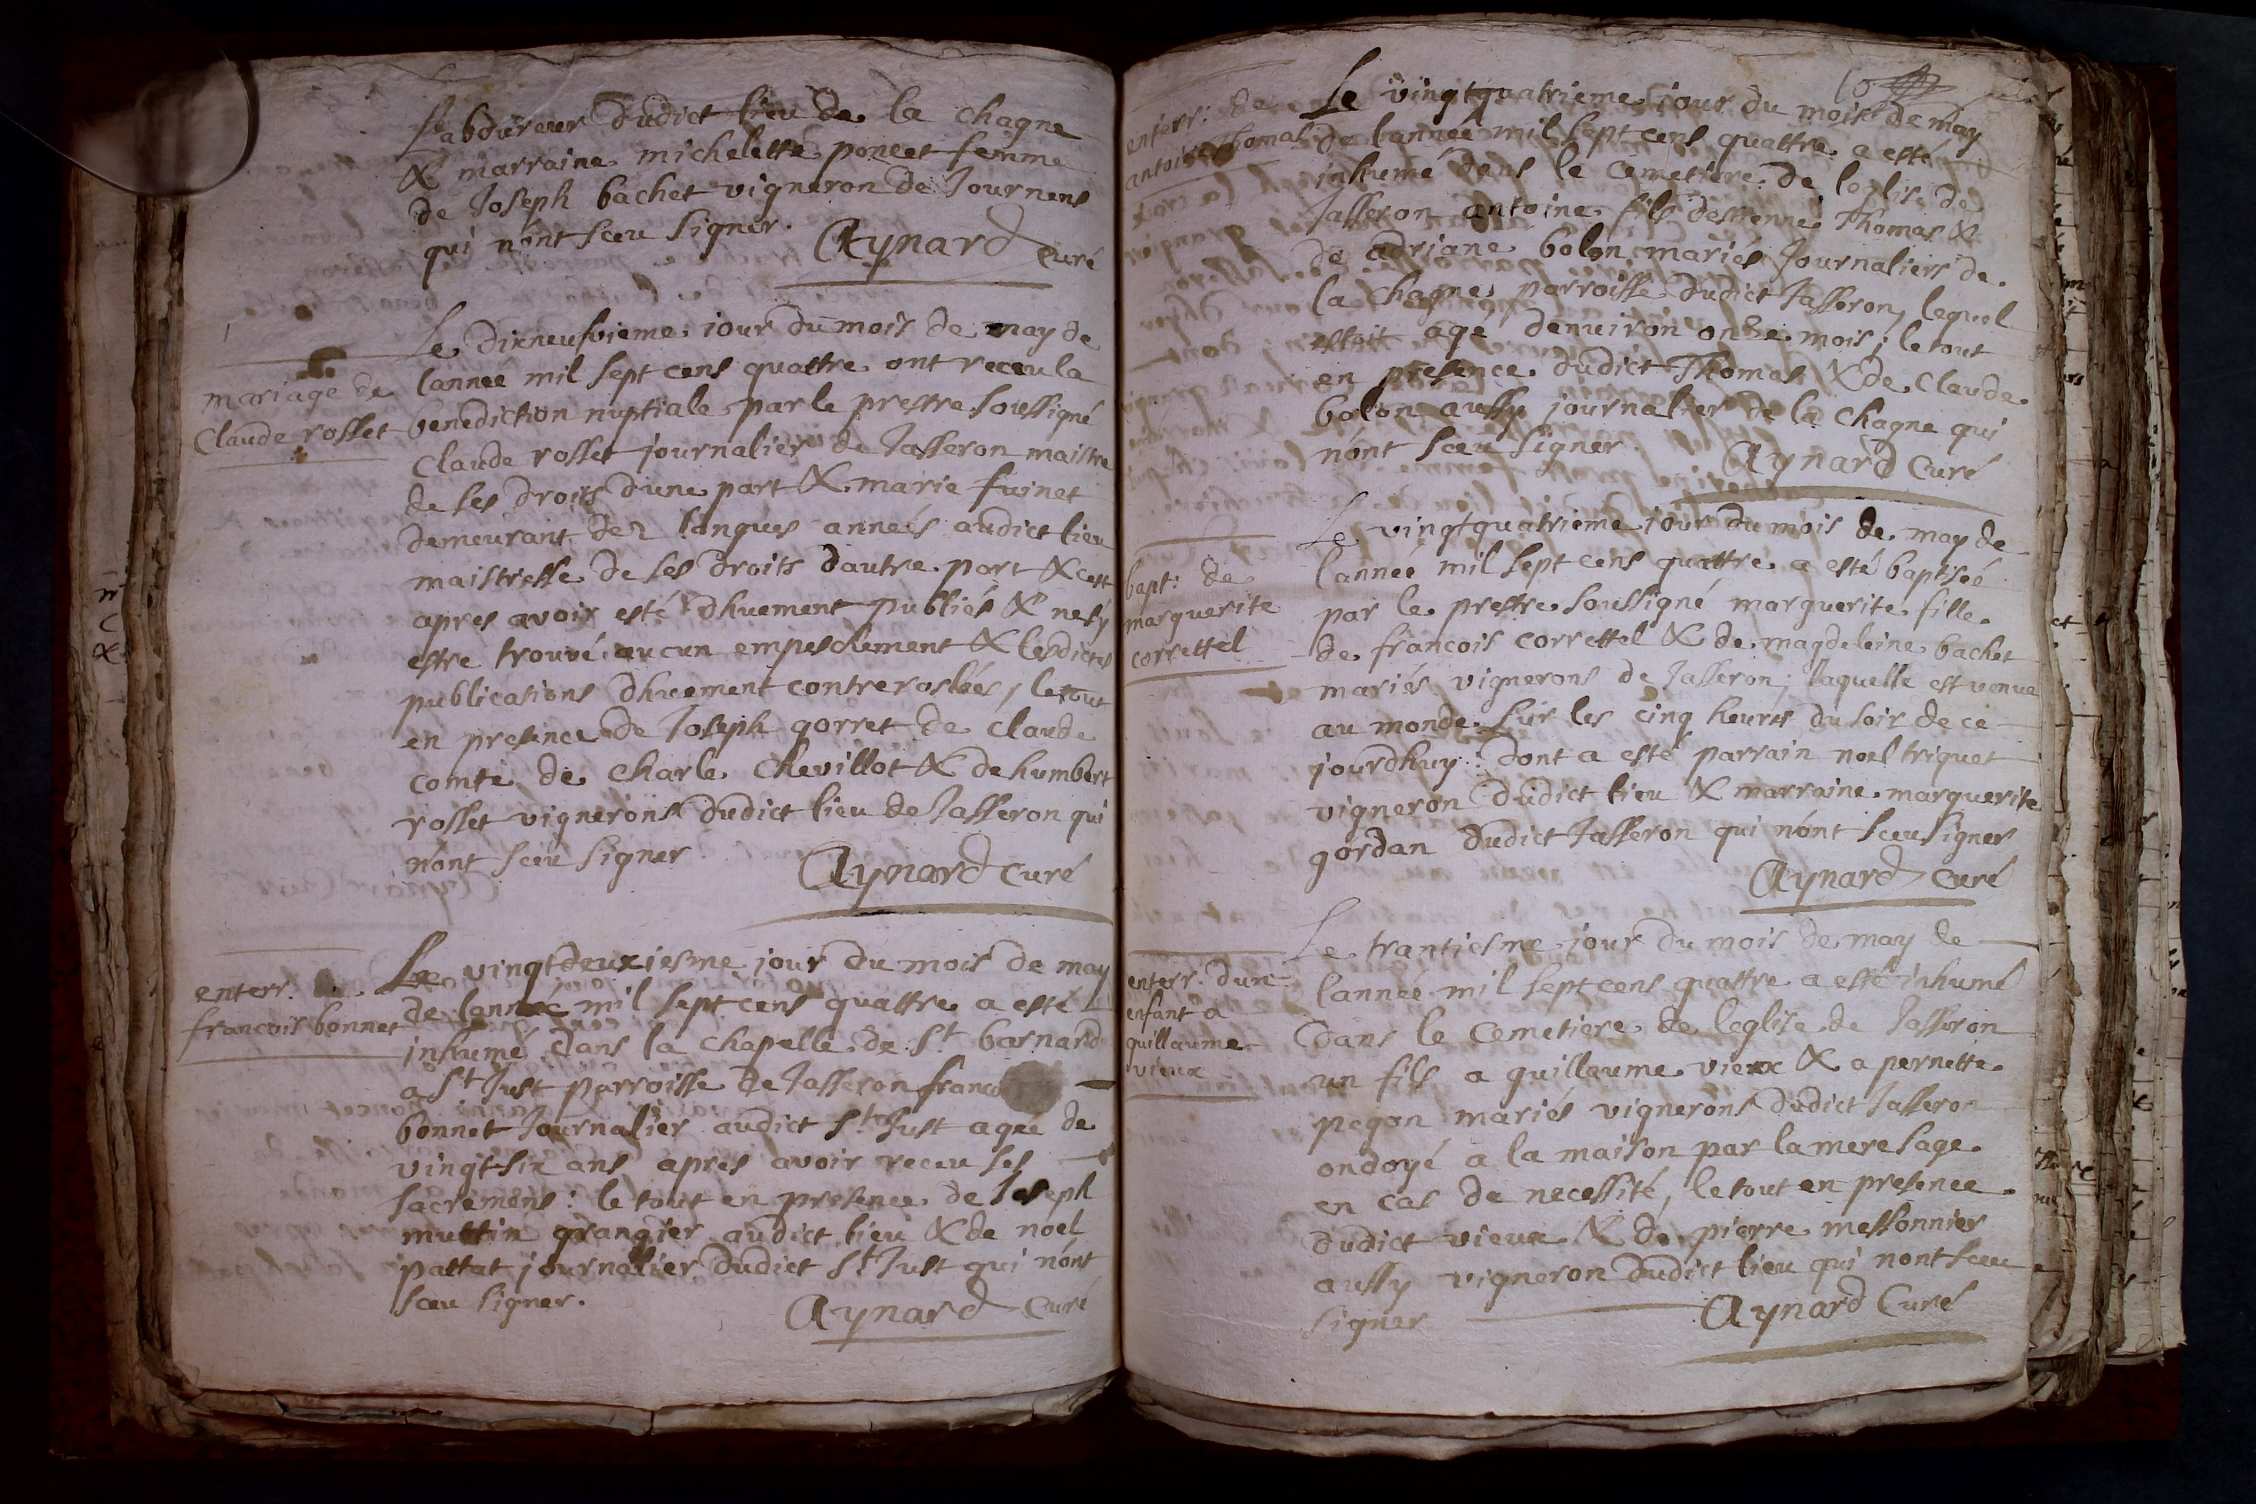 Laboureur dudict lieu de la chagne
& marraine michelette poncet femme
de Joseph bachet vigneron de Journens
qui n'ont sceu signer.
Aynard curé
mariage de
Claude rosset
Le dixneufvieme jour du mois de may de
lannee mil sept cens quattre ont receu la
benediction nuptiale par le prestre soussigné
Claude rosset journalier de Jasseron maistre
de ses droits dune part & marie fuinet
demeurant dez longues anneés audict lieu
maistresse de ses droits dautre part & cest
apres avoir esté dhuement publiés & nesy
estre trouvé aucun empeschement & lesdictes
publications dhuement controroslées, le tout
en presence de Joseph gorret de claude
comte de charle chevillot & de humbert
rosset vignerons dudict lieu de Jasseron qui
n'ont sceu signer
Aynard curé
enterr.
francois bonnet
Le vingtdeuxiesme jour du mois de may
de lanneé mil sept cens quattre a esté
inhumé dans la chapelle de St barnard
a St Just parroisse de Jasseron
bonnet Journalier audict St Just ageé de
vingt six ans apres avoir receu ses
sacremens : le tout en presence de Joseph
muttin grangier audict lieu & de noel
pattat journalier dudict St Just qui n'ont
sceu signer.
Aynard curé
enterr: de
antoine Thomas
Le vingtquatrieme jour du mois de may
de lanneé mil sept cens quattre a esté
inhumé dans le cemetiere de leglise de
Jasseron antoine fils destienne Thomas &
de adriane bolon mariés Journaliers de
la chagne parroisse dudict Jasseron, lequel
estoit agé denuiron onze mois ; le tout
en presence dudict Thomas & de claude
bolon aussy journalier de la chagne qui
n'ont sceu signer
Aynard Curé
bapt: de
marguerite
correttel
Le vingtquatrieme jour du mois de may de
lanneé mil sept cens quattre a esté baptiseé
par le prestre soussigné marguerite fille
de francois correttel & de magdeleine bachet
mariés vignerons de Jasseron ; laquelle est venue
au monde sur les cinq heures du soir de ce
jourdhuy : dont a esté parrain noel triquet
vigneron dudict lieu & marraine marguerite
gordan dudict Jasseron qui n'ont sceu signer
Aynard curé
enterr. dun
enfant a
guillaume
vieux
Le trantiesme jour du mois de may de
lannée mil sept cens quattre a esté inhumé
dans le cemetiere de leglise de Jasseron
un fils a guillaume vieux & a pernette
pegon mariés vignerons dudict Jasseron
ondoyé a la maison par la mere sage
en cas de necessité, le tout en presence
dudict vieux & de pierre messonnier
aussy vigneron dudict lieu qui nont sceu
signer
Aynard Curé